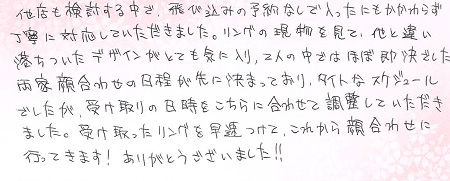 他店も検討する中で、飛び込みの予約なしで入ったにもかかわらず
丁寧に対応していただきました。リングの現物を見て、他と違い
落ちついたデザインがとても気に入り、2人の中ではほぼ即決でした
両家顔合わせの日程が先に決まっており、タイトなスケジュール
でしたが、受け取りの日時をこちらに合わせて調整していただき
ました。受け取ったリングを早速つけて、これから顔合わせに
行ってきます!ありがとうございました!!